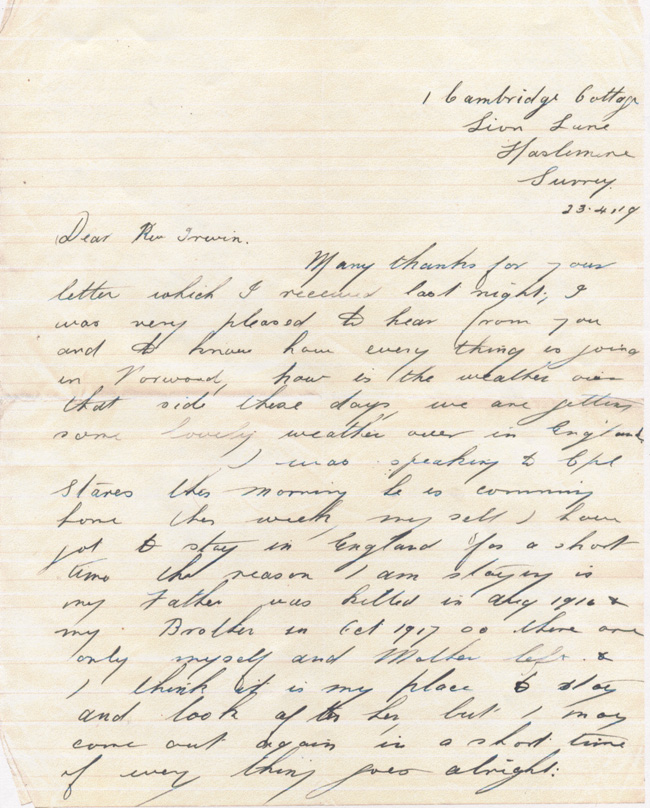 1 Cambridge Cottage
Lion Lane
Haslemere
Surrey.
23.4.19
Dear Rev Irwin.
Many thanks for your
letter which I received last night, I
was very pleased to hear from you
and to know how every thing is going
in Norwood, how is the weather over
that side these days, we are getting
some lovely weather over in England
I was speaking to Cpl
Stares this morning he is comming
home this week, my self I have
got to stay in England for a short
time the reason I am staying is
my Father was killed in Aug 1916 &
my Brother in Oct 1917 so there are
only myself and Mother left. &
I think it is my place to stay
and look after her, but I may
come out again in a short time
if every thing goes alright: